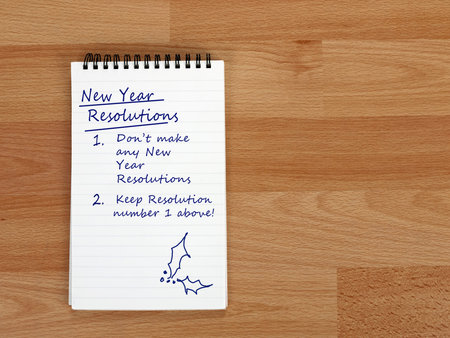 New Year
Resolutions
1. Don't make
any New
Year
Resolutions
2. Keep Resolution
number 1 above!